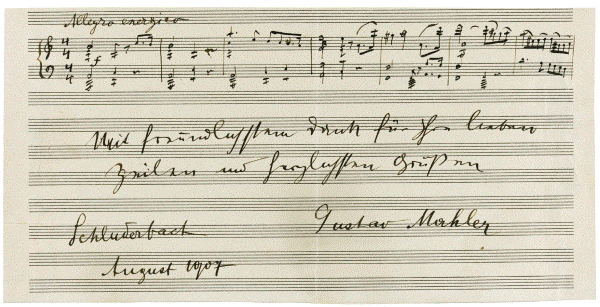 Allegro energico
Mit freundlichstem Dank für Ihre lieben
Zeilen und herzlichsten Grüßen
Schluderbach
Gustav Mahler
August 1907